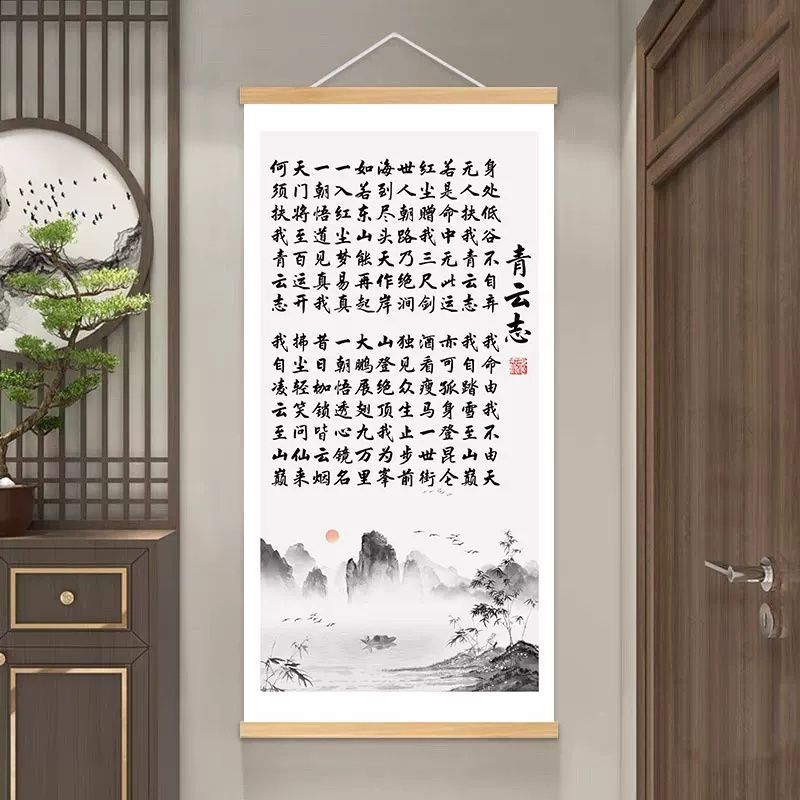 青云志
身处低谷不自弃
我命由我不由天
无人扶我青云志
我自踏雪至山巅
若是命中无此运
亦可孤身登昆仑
红尘赠我三尺剑
酒看瘦马一世街
世人朝路乃绝涧
独见众生止步前
海到尽头天作岸
山登绝顶我为峯
如若东山能再起
大鹏展翅九万里
一入红尘梦易真
一朝悟透心镜名
一朝悟道见真我
昔日枷锁皆云烟
天门将至百运开
拂尘轻笑问仙来
何须扶我青云志
我自凌云至山巅